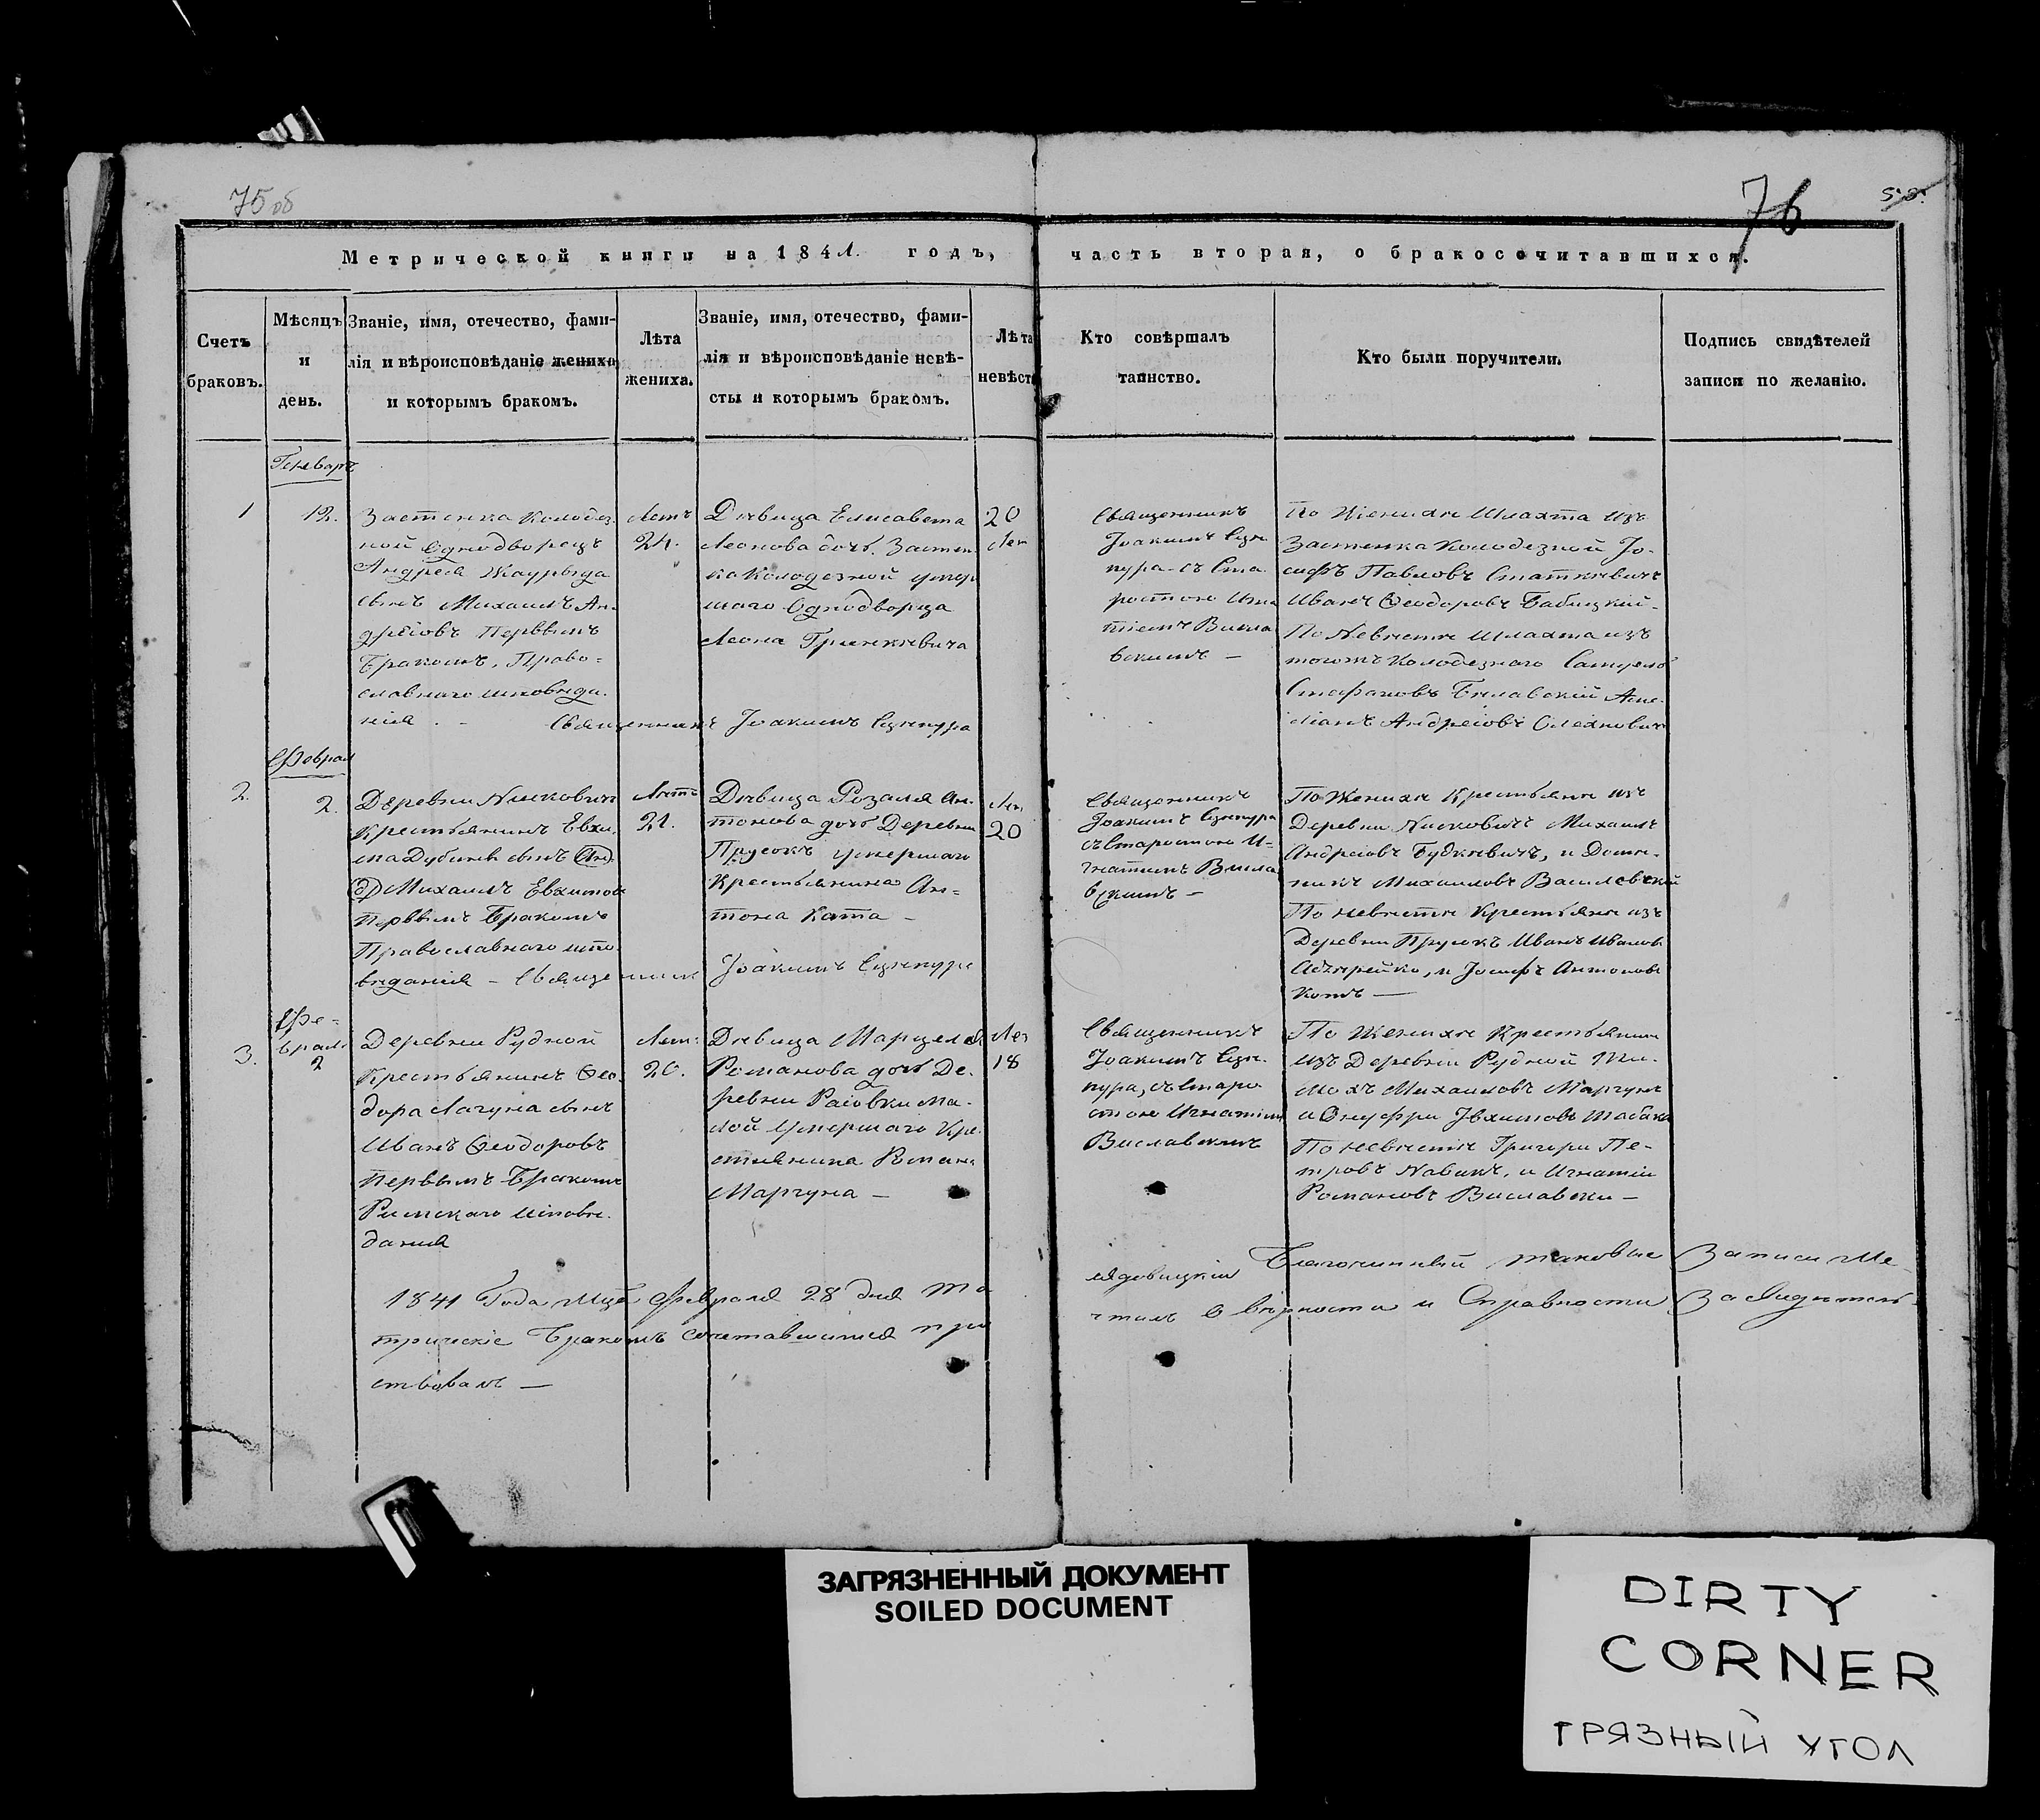 75 об
76
Метрической книги на 1841. годъ, часть вторая, о бракосочитавшихся.
Счетъ
браковъ.
Мѣсяцъ
и
день.
Званіе, имя, отечество, фами-
лія и вѣроисповѣданіе жениха
и которымъ бракомъ.
Лѣта
жениха.
Званіе, имя, отечество, фами-
лія и вѣроисповѣданіе невѣ-
сты и которымъ бракомъ.
Лѣта
невѣст
Кто совѣршалъ
таинство.
Кто были поручители.
Подпись свидѣтелей
записи по желанію.
Генварь
1
12.
Застенка Колодез
ной Однодворецъ
Андрея
сынъ Михаилъ Ан-
дреіовъ Первымъ
Бракомъ, Право=
славнаго исповѣда
нія. -
Летъ
24.
Дѣвица Елисавета
Леонова дочь. Застен
ка Колодезной умер
шаго Однодворца
Леона Гринкѣвича
20
Лет
Священникъ Іоакимъ
Священникъ
Іоакимъ
пура-съ Ста
ростою Игна
тіемъ Висла
вскимъ -
По Женихѣ Шляхта изъ
Застенка Колодезной Іо-
сифъ Павловъ Статкѣвичъ
Иванъ Ѳеодоровъ Бабицкій-
По Невѣстѣ Шляхта изъ
тогожъ Колодезнаго
Стефановъ
Андреіовъ Олехновичъ
Феврал
2.
2.
Деревни
Крестьянинъ Евхи
ма сынъ
Михаилъ Евхимовъ
Первымъ Бракомъ
Православнаго испо
вѣданія - Священникъ
Лѣтъ
21.
Дѣвица Розалія Ан-
тонова дочь Деревни
Прусокъ умершаго
Крестьянина Ан=
тона Ката -
Іоакимъ
Лет
20
Священникъ
Іоакимъ
съ Старостою И-
гнатіемъ Висла
вскимъ -
По Женихѣ Крестьяне изъ
Деревни Михаилъ
Андреіовъ Будкѣвичъ, и Доми-
никъ Михаиловъ Василевскій
По невѣстѣ Крестьяне изъ
Деревни Прусокъ Иванъ Ивановъ
и Іосифъ Антоновъ
Котъ -
Фе=
враль
3.
2
Деревни Рудной
Крестьянинъ Ѳео
дора Лагуна сынъ
Иванъ Ѳеодоровъ
Первымъ Бракомъ
Римскаго исповѣ-
данія
Лет:
20.
Дѣвица Марцеля
Романова дочь Де-
ревни Раіовки Ма-
лой Умершаго Кре
стьянина Романа
Маргуна -
Лет
18
Священникъ
Іоакимъ
пура, съ Старо
стою Игнатіемъ
Виславскимъ
По Женихѣ Крестьяни
изъ Деревни Рудной Ти-
мохъ Михаиловъ Маргунъ
и Онуфри Івхимовъ
По невѣстѣ Григори Пе-
тровъ Навикъ, и Игнатіи
Романовъ Виславски -
1841 Года Мца Февраля 28 дня
Благочинный таковые Записи Ме
трическіе Бракомъ сочетавшихся
о вѣрности и Справности Засвидетель
ствовалъ -
ЗАГРЯЗНЕННЫЙ ДОКУМЕНТ
SOILED DOCUMENT
DIRTY
CORNER
ГРЯЗНЫЙ УГОЛ